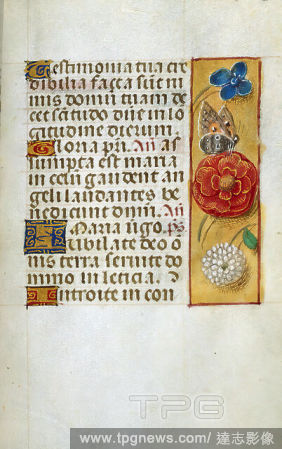 Testimonia tua cre
dibilia facta sūt ni
mis domū tuam de
cet sc̄titudo dn̄e in lo
gitudine dierum
Gloria pr̄i. An̄ as
sumpta est maria
in celū gaudent an
geli laudantes be
nedicunt dnm̄. An̄
Maria ūgo. ps̄
Iubilate deo o
nis terra seruite do
mino in leticia.
Introite in con
TPG
www.tpgnews.com/ 達志影像